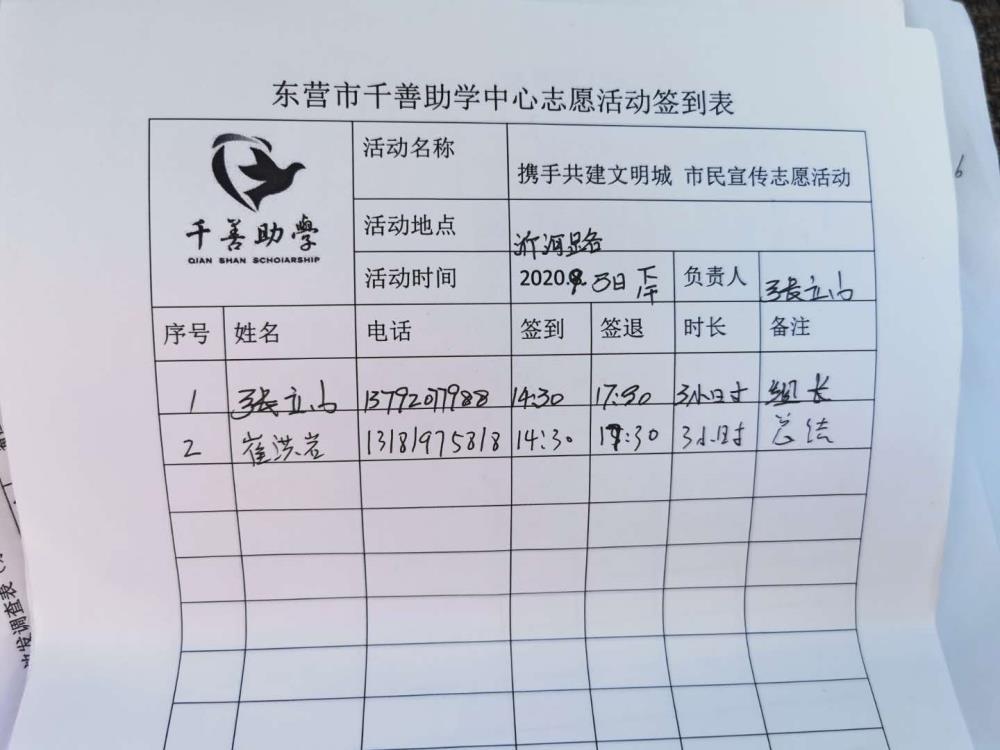 东营市千善助学中心志愿活动签到表
千善助學
QIAN SHAN SCHOIARSHIP
活动名称 携手共建文明城 市民宣传志愿活动
活动地点 沂河路
活动时间 2020.9.3日下午 负责人 张立山
序号 姓名 电话 签到 签退 时长 备注
1 张立山 13792077988 14:30 17:30 3小时 组长
2 崔洪岩 13181975818 14:30 17:30 3小时 总结
发调查表
6